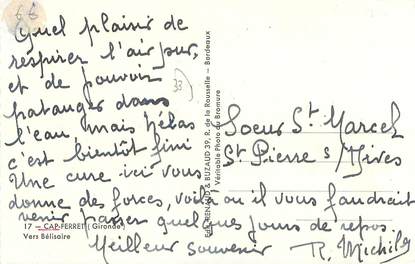 66
Quel plaisir de
respirer l'air pur,
et de pouvoir
patauger dans
l'eau, mais hélas
c'est bientôt fini
Une cure ici vous
donne des forces, voilà où il vous faudrait
venir passer quelques jours de repos.
Meilleur souvenir
33
17 - CAP-FERRET (Gironde)
Vers Bélisaire
Edit. RENAUD & BUZAUD 39, R. de la Rousselle - Bordeaux
Véritable Photo au Bromure
Soeur St Marcel
St Pierre s/